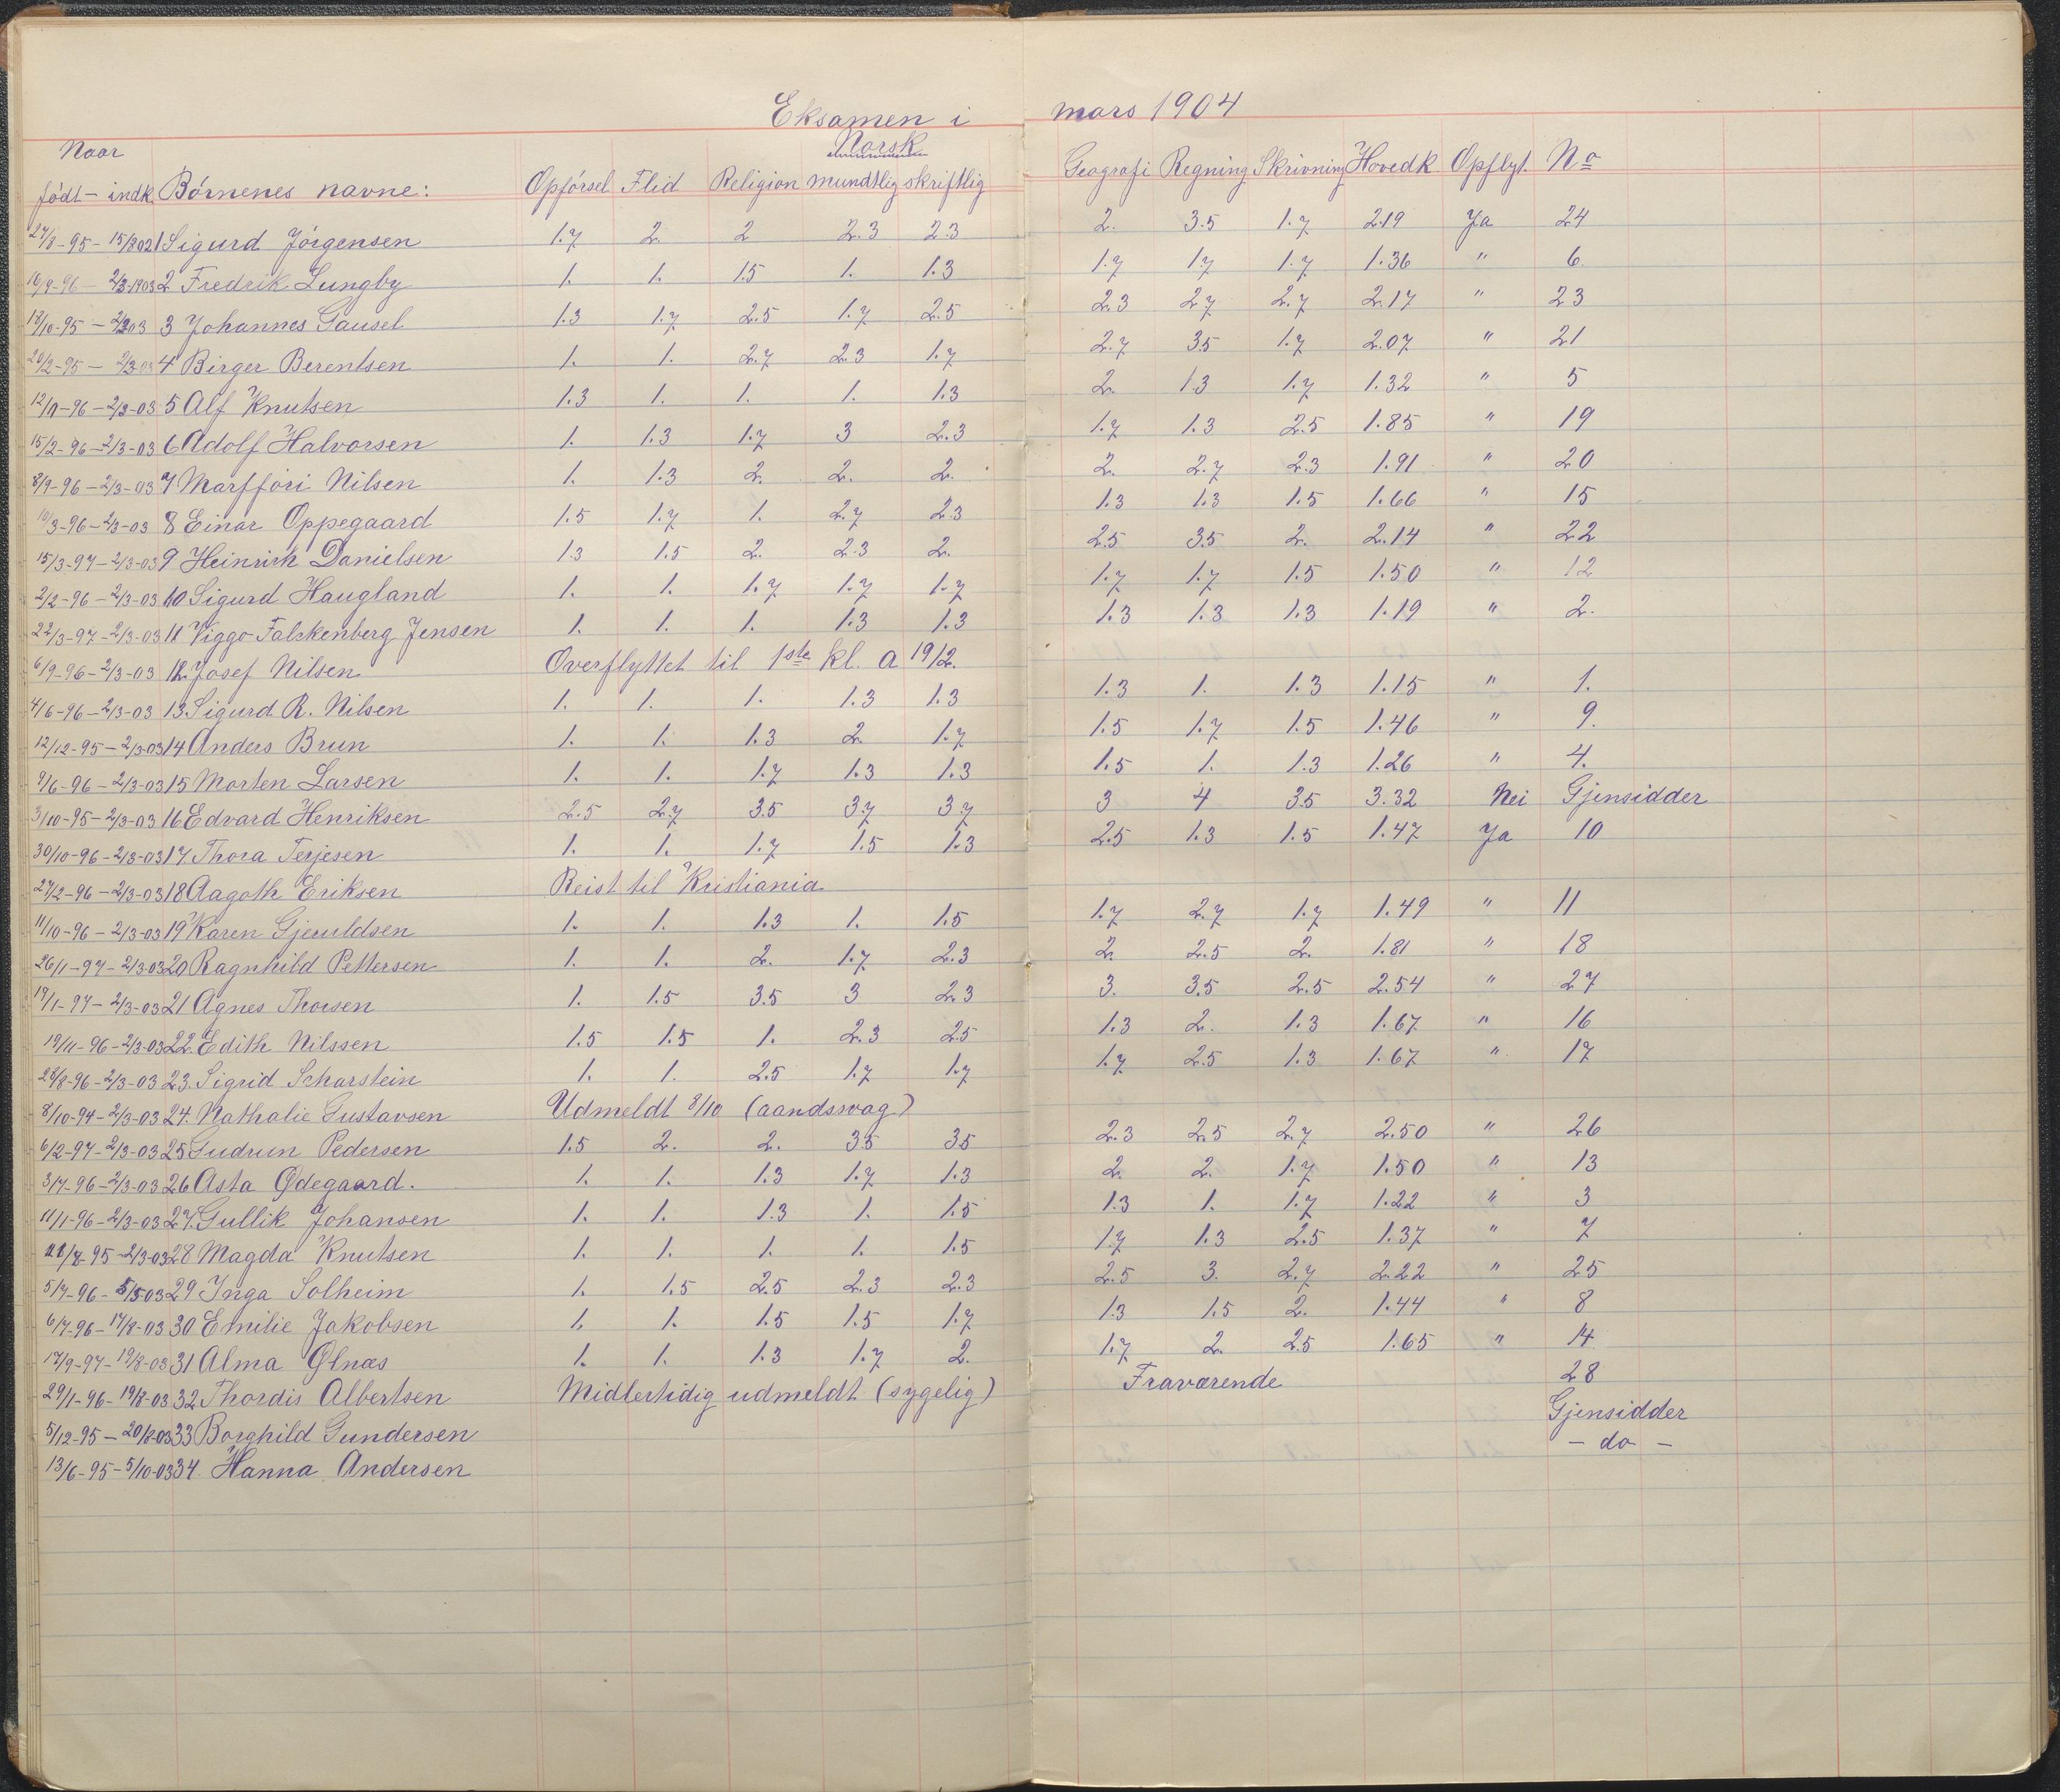 Eksamen i mars 1904
Naar Norsk
födt - indk. Börnenes navne: Opförsel Flid Religion mundtlig skriftlig Geografi Regning Skrivning Hovedk. Opflyt. No
27/8-95 - 15/8 02 1 Sigurd Jörgensen 1.7 2. 2 2.3 2.3 2. 3.5 1.7 2.19 Ja 24
16/9-96 - 2/3-1903 2 Fredrik Lungby 1. 1. 1.5 1. 1.3 1.7 1.7 1.7 1.36 " 6.
18/10-95 - 2/3 03 3 Johannes Gausel 1.3 1.7 2.5 1.7 2.5 2.3 2.7 2.7 2.17 " 23
20/2-95 - 2/3-03 4 Birger Berentsen 1. 1. 2.7 2.3 1.7 2.7 3.5 1.7 2.07 " 21
12/11-96 - 2/3-03 5 Alf Knutsen 1.3 1. 1. 1. 1.3 2. 1.3 1.7 1.32 " 5
15/2-96 - 2/3-03 6 Adolf Halvorsen 1. 1.3 1.7 3 2.3 1.7 1.3 2.5 1.85 " 19
8/9-96 - 2/3-03 7 Marffföri Nilsen 1. 1.3 2. 2. 2. 2. 2.7 2.3 1.91 " 20
10/3-96 - 2/3-03 8 Einar Oppegaard 1.5 1.7 1. 2.7 2.3 1.3 1.3 1.5 1.66 " 15
15/3-97 - 2/3-03 9 Heinrik Danielsen 1.3 1.5 2. 2.3 2. 2.5 3.5 2. 2.14 " 22
2/2-96 - 2/3-03 10 Sigurd Haugland 1. 1. 1.7 1.7 1.7 1.7 1.7 1.5 1.50 " 12
22/3-97 - 2/3-03 11 Viggo Falckenberg Jensen 1. 1. 1. 1.3 1.3 1.3 1.3 1.3 1.19 " 2.
6/9-96 - 2/3-03 12. Josef Nilsen Overflyttet til 1ste kl. a 19/2.
4/6-96 - 2/3-03 13. Sigurd R. Nilsen 1. 1. 1. 1.3 1.3 1.3 1. 1.3 1.15 " 1.
12/12-95 - 2/3-03 14 Anders Brun 1. 1. 1.3 2. 1.7 1.5 1.7 1.5 1.46 " 9.
9/6-96 - 2/3-03 15 Morten Larsen 1. 1. 1.7 1.3 1.3 1.5 1. 1.3 1.26 " 4.
3/10-95 - 2/3-03 16 Edvard Henriksen 2.5 2.7 3.5 3.7 3.7 3 4 3.5 3.32 Nei Gjensidder
30/10-96 - 2/3-03 17. Thora Terjesen 1. 1. 1.7 1.5 1.3 2.5 1.3 1.5 1.47 Ja 10
27/2-96 - 2/3-03 18 Aagoth Eriksen Reist til Kristiania
11/10-96 - 2/3-03 19 Karen Gjeruldsen 1. 1. 1.3 1. 1.5 1.7 2.7 1.7 1.49 " 11
26/1-97 - 2/3-03 20 Ragnhild Pettersen 1. 1. 2. 1.7 2.3 2. 2.5 2. 1.81 " 18
19/1-97 - 2/3-03 21 Agnes Thorsen 1. 1.5 3.5 3 2.3 3. 3.5 2.5 2.54 " 27
19/11-96 - 2/3-03 22. Edith Nilssen 1.5 1.5 1. 2.3 2.5 1.3 2. 1.3 1.67 " 16
28/8-96 - 2/3-03 23. Sigrid Scharstein 1. 1. 2.5 1.7 1.7 1.7 2.5 1.3 1.67 " 17
8/10-94 - 2/3-03 24. Nathalie Gustavsen Udmeldt 8/10 (aandssvag)
6/2-97 - 2/3-03 25 Gudrun Pedersen 1.5 2. 2. 3.5 3.5 2.3 2.5 2.7 2.50 " 26
3/7-96 - 2/3-03 26 Asta Ødegaard. 1. 1. 1.3 1.7 1.3 2. 2. 1.7 1.50 " 13
11/11-96 - 2/3-03 27. Gullik Johansen 1. 1. 1.3 1. 1.5 1.3 1. 1.7 1.22 " 3
95 - 2/3-03 28 Magda Knutsen 1. 1. 1. 1. 1.5 1.7 1.3 2.5 1.37 " 7
5/7-96 - 5/5 03 29 Inga Solheim 1. 1.5 2.5 2.3 2.3 2.5 3. 2.7 2.22 " 25
6/7-96 - 17/8-03 30 Emilie Jakobsen 1. 1. 1.5 1.5 1.7 1.3 1.5 2. 1.44 " 8
17/9-97 - 19/8-03 31 Alma Ølnæs 1. 1. 1.3 1.7 2. 1.7 2. 2.5 1.65 " 14
29/1-96 - 19/8-03 32 Thordis Albertsen Midlertidig udmeldt (sygelig) Fraværende 28
5/12-95 - 20/8-03 33 Borghild Gundersen Gjensidder
13/6-95 - 5/10-03 34. Hanna Andersen - do -